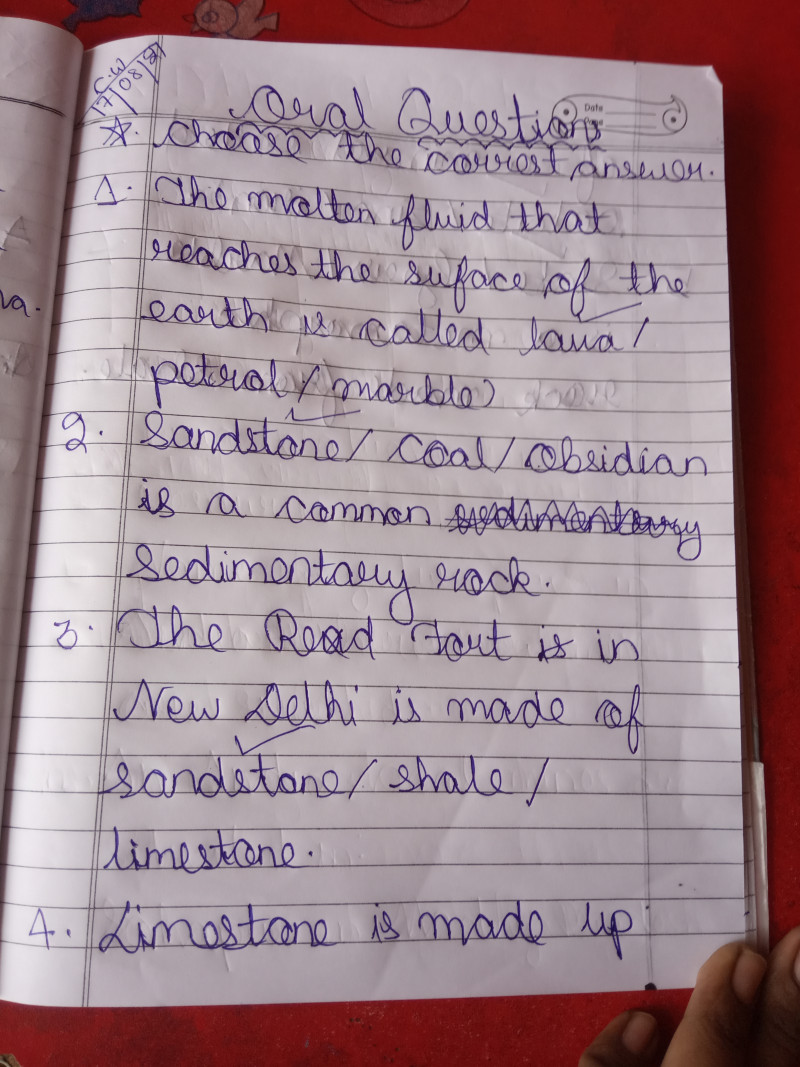 C.W
17/08/21
Oral Questions
Date
☆. Choose the correst answer.
1. The molten fluid that
reaches the suface of the
earth is called lava/
petrol/marble)
2. Sandstone/ Coal/ Obsidian
is a common sedimentary
Sedimentary rock.
3. The Read Fort is in
New Delhi is made of
sandstone/ shale/
limestone.
4. Limestone is made up